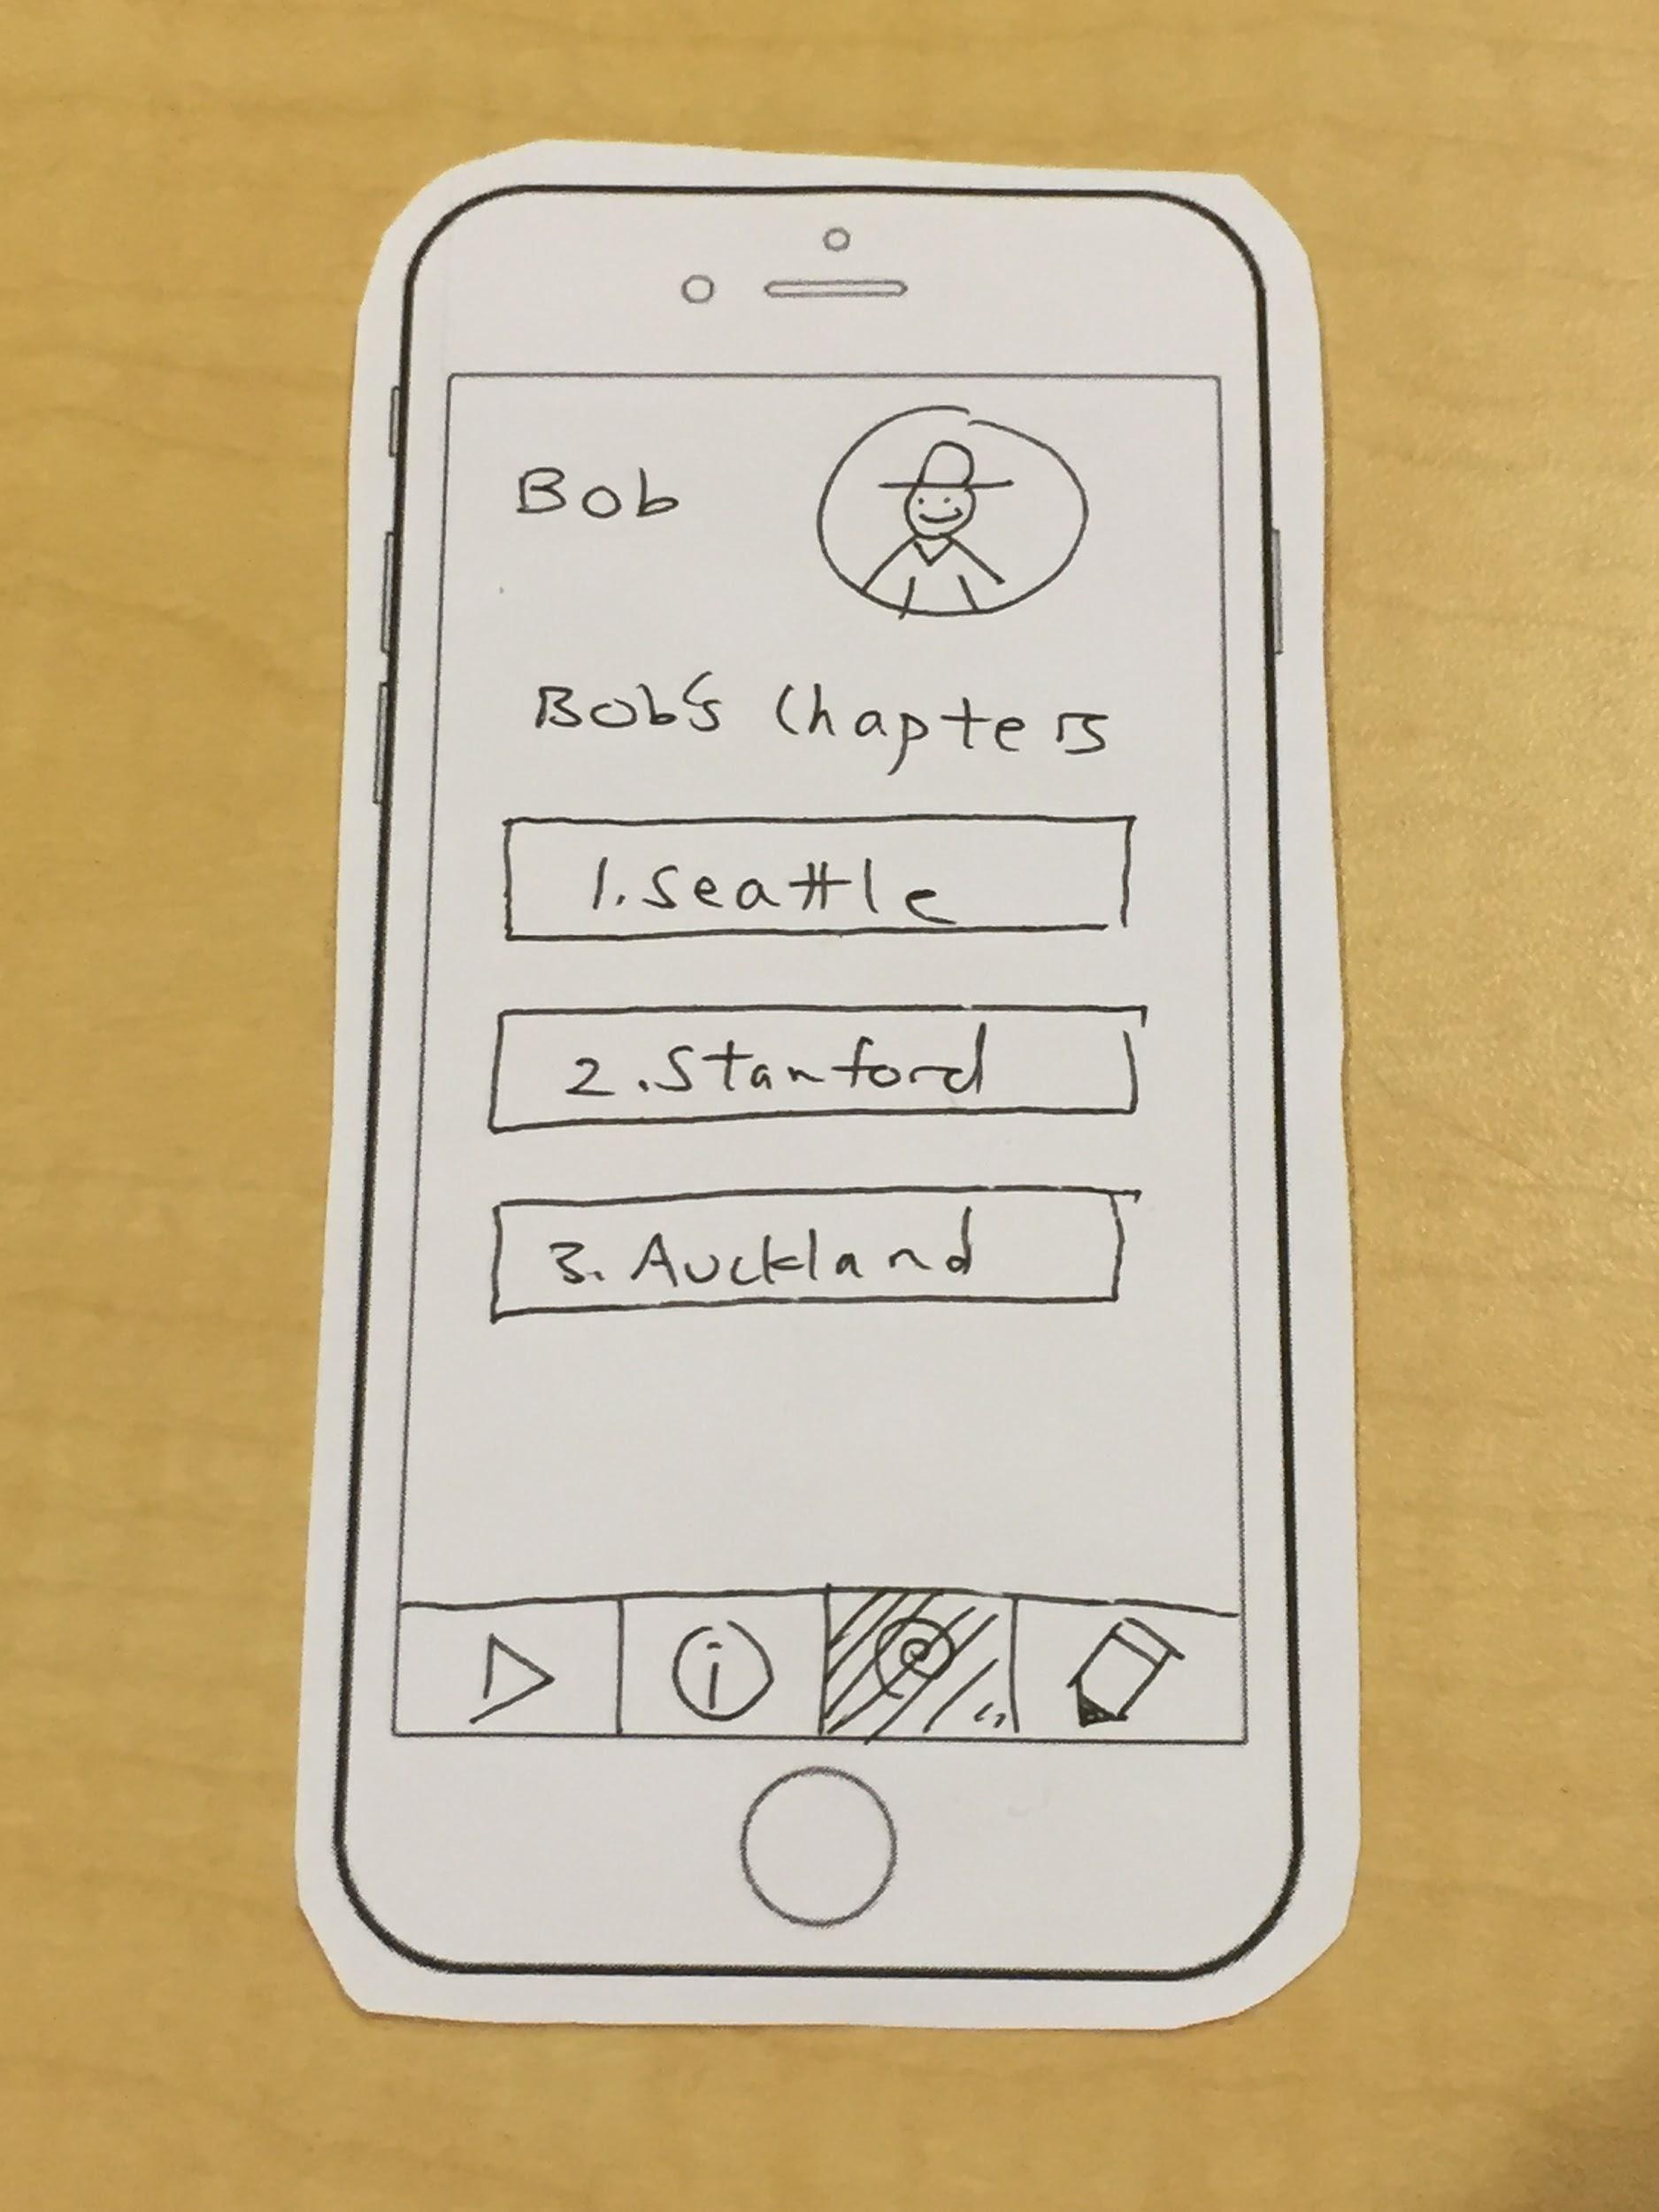 Bob
Bob's Chapters
1. Seattle
2. Stanford
3. Auckland
i